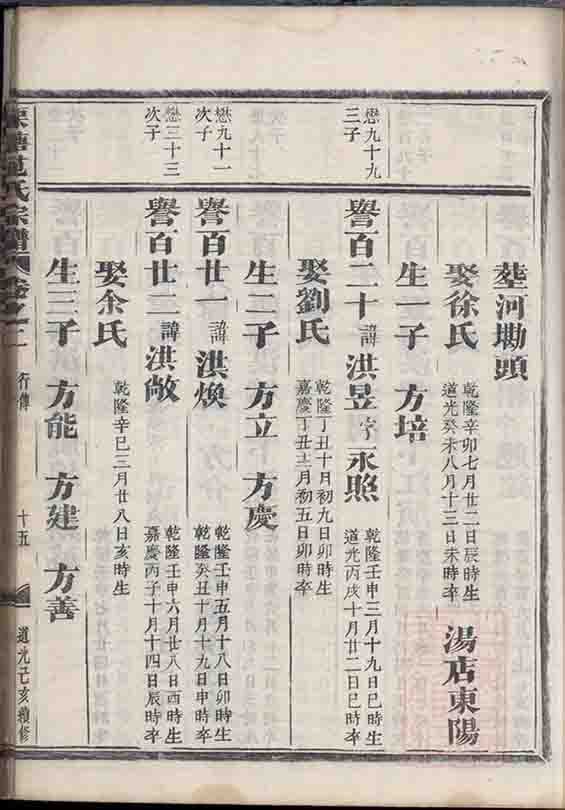 塟河墈頭
娶徐氏 乾隆辛卯七月廿二日辰時生
道光癸未八月十三日未時卒
湯店東陽
生一子 方培
懋九十九
三子
譽百二十 諱 洪昱 字 永照
乾隆壬申三月十九日巳時生
道光丙戌十月廿二日巳時卒
娶劉氏 乾隆丁丑十月初九日卯時生
嘉慶丁丑十二月初五日卯時卒
生二子 方立 方慶
懋九十一
次子
譽百廿一 諱 洪煥
乾隆壬申五月十八日卯時生
乾隆癸丑十月十九日申時卒
懋三十三
次子
譽百廿二 諱 洪敞
乾隆壬申六月廿八日酉時生
嘉慶丙子十月十四日辰時卒
娶余氏 乾隆辛巳三月廿八日亥時生
生三子 方能 方建 方善
塘范氏宗譜 卷之 行傳 十五 道光己亥續修